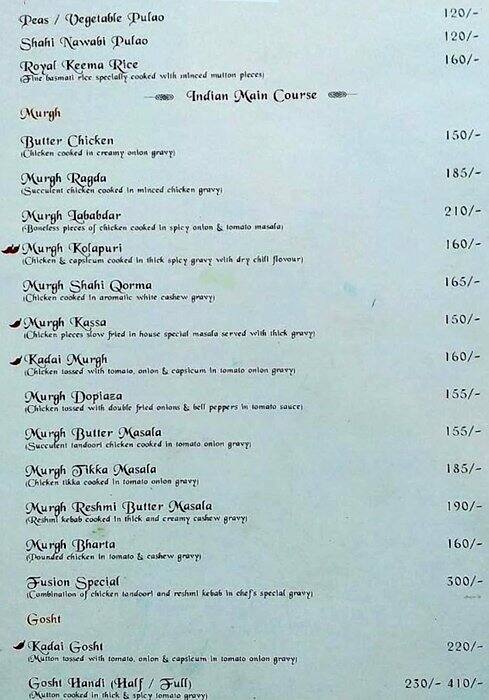 Peas / Vegetable Pulao 120/-
Shahi Nawabi Pulao 120/-
Royal Keema Rice 160/-
(Fine basmati rice specially cooked with minced mutton pieces)
Indian Main Course
Murgh
Butter Chicken 150/-
(Chicken cooked in creamy onion gravy)
Murgh Ragda 185/-
(Succulent chicken cooked in minced chicken gravy)
Murgh Lababdar 210/-
(Boneless pieces of chicken cooked in spicy onion & tomato masala)
Murgh Kolapuri 160/-
(Chicken & capsicum cooked in thick spicy gravy with dry chili flavour)
Murgh Shahi Qorma 165/-
(Chicken cooked in aromatic white cashew gravy)
Murgh Kassa 150/-
(Chicken pieces slow fried in house special masala served with thick gravy)
Kadai Murgh 160/-
(Chicken tossed with tomato, onion & capsicum in tomato onion gravy)
Murgh Dopiaza 155/-
(Chicken tossed with double fried onions & bell peppers in tomato sauce)
Murgh Butter Masala 155/-
(Succulent tandoori chicken cooked in tomato onion gravy)
Murgh Tikka Masala 185/-
(Chicken tikka cooked in tomato onion gravy)
Murgh Reshmi Butter Masala 190/-
(Reshmi kebab cooked in thick and creamy cashew gravy)
Murgh Bharta 160/-
(Pounded chicken in tomato & cashew gravy)
Fusion Special 300/-
(Combination of chicken tandoori and reshmi kebab in chef's special gravy)
Gosht
Kadai Gosht 220/-
(Mutton tossed with tomato, onion & capsicum in tomato onion gravy)
Gosht Handi (Half / Full) 230/- 410/-
(Mutton cooked in thick & spicy tomato gravy)